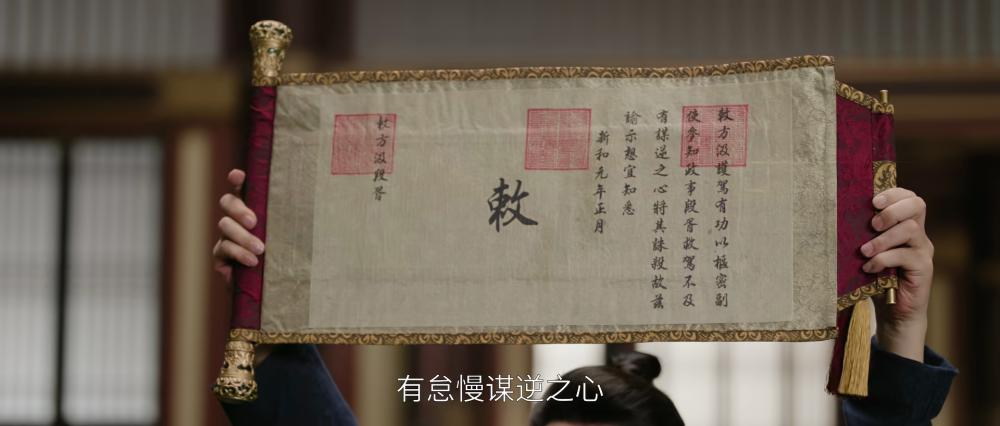 敕方汲護駕有功以樞密副
使參知政事段胥救駕不及
有謀逆之心將其誅殺故茲
諭示想宜知悉
新和元年正月
敕
敕方汲段胥
有怠慢谋逆之心